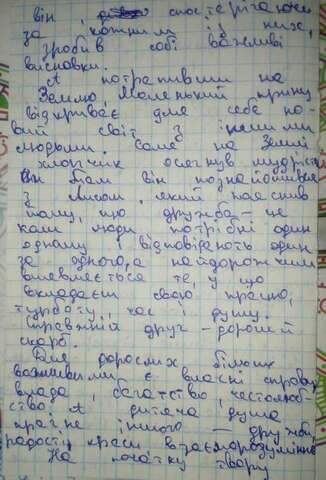 він, спостерігаючи
за кожним із них,
зробив собі важливі
висновки.
А потрапивши на
Землю, Маленький принц
відкриває для себе но-
вий світ з іншими
людьми. Саме на Землі
хлопчик осягнув мудрість
Він там він познайомився
з Лисом, який пояснив
тому, що дружба – це
коли люди потрібні один
одному відповідають один
за одного, а найдорожчим
виявляється те, у що
вкладаєш свою працю,
турботу, час і душу.
Справжній друг – дорогий
скарб.
Для дорослих більш
важливими є власні справи,
влада, багатство, честолюб-
ство. А дитяча душа
прагне іншого – дружби
радості, краси взаєморозуміння
На початку твору